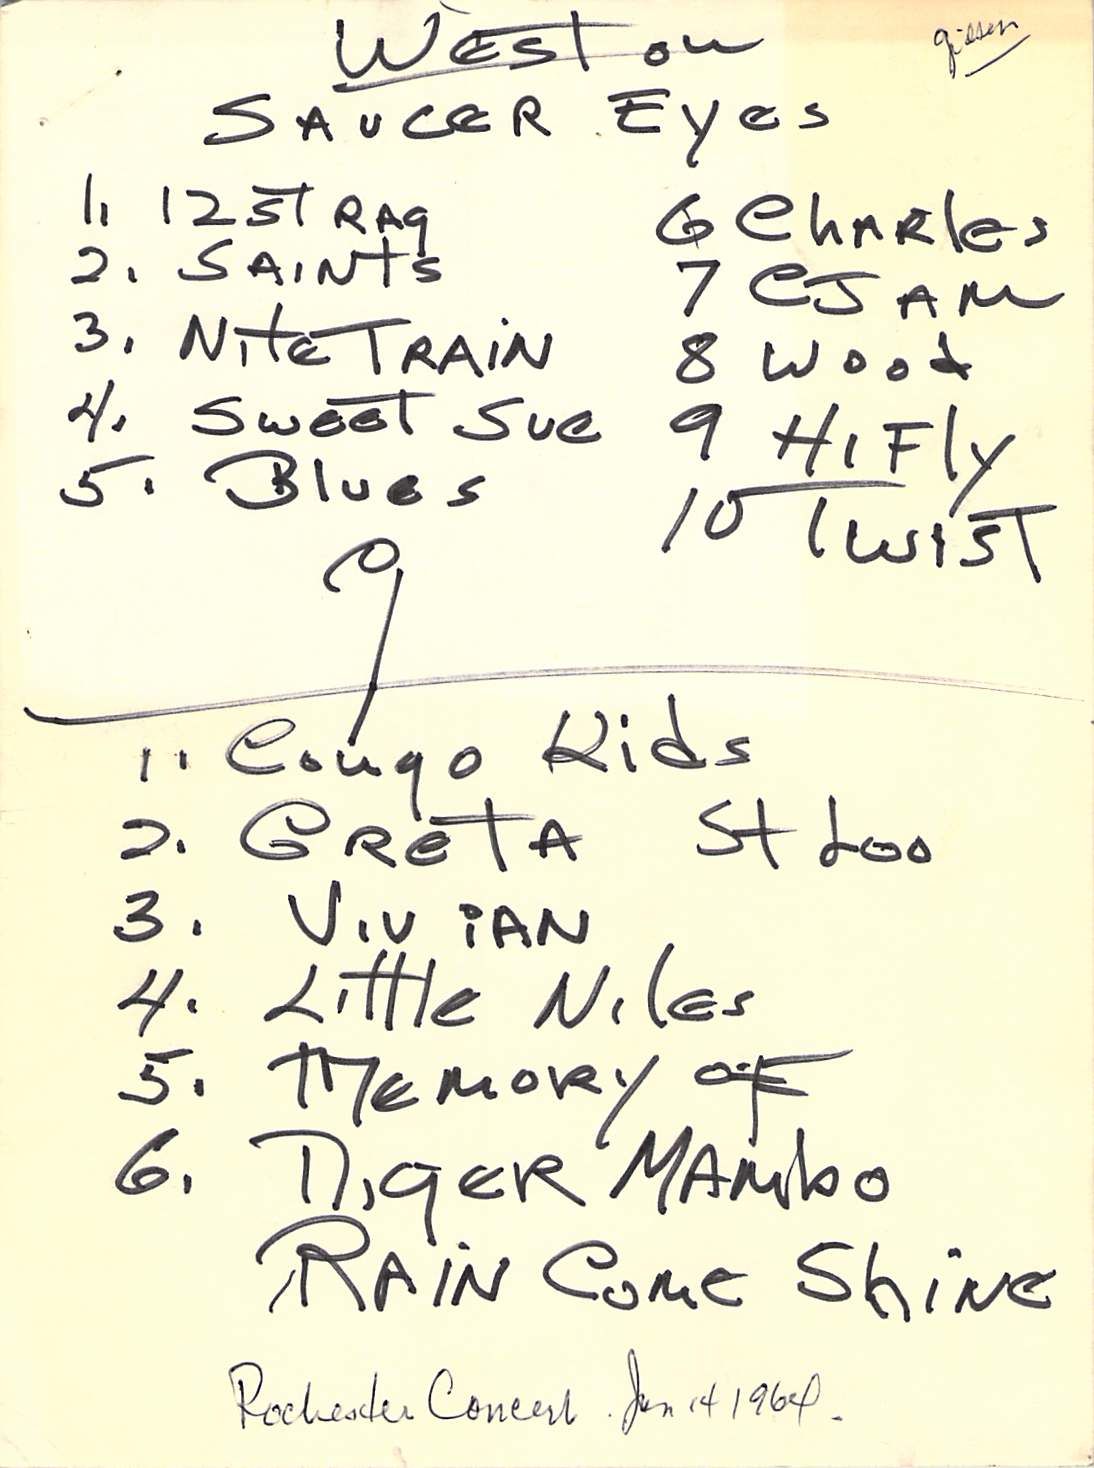 Weston
Saucer Eyes
1. 12 St Rag
2. Saints
3. Nite Train
4. Sweet Sue
5. Blues
6 Charles
7 CJam
8 Wood
9 Hi Fly
10 Twist
1. Congo Kids
2. Greta St Loo
3. Vivian
4. Little Niles
5. Memory of
6. Niger Mambo
Rain Come Shine
Rochester Concert. Jan 14 1964.